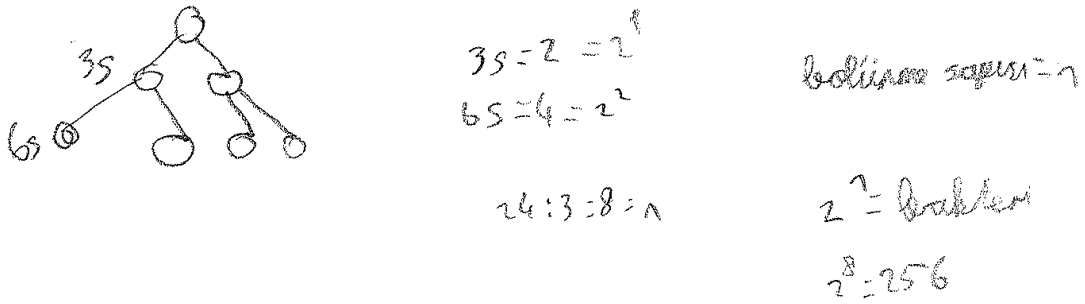 3s
6s
3s=2 =2¹
6s=4=2²
24:3=8=n
bölünme sayısı=n
2ⁿ=bakteri
2⁸=256